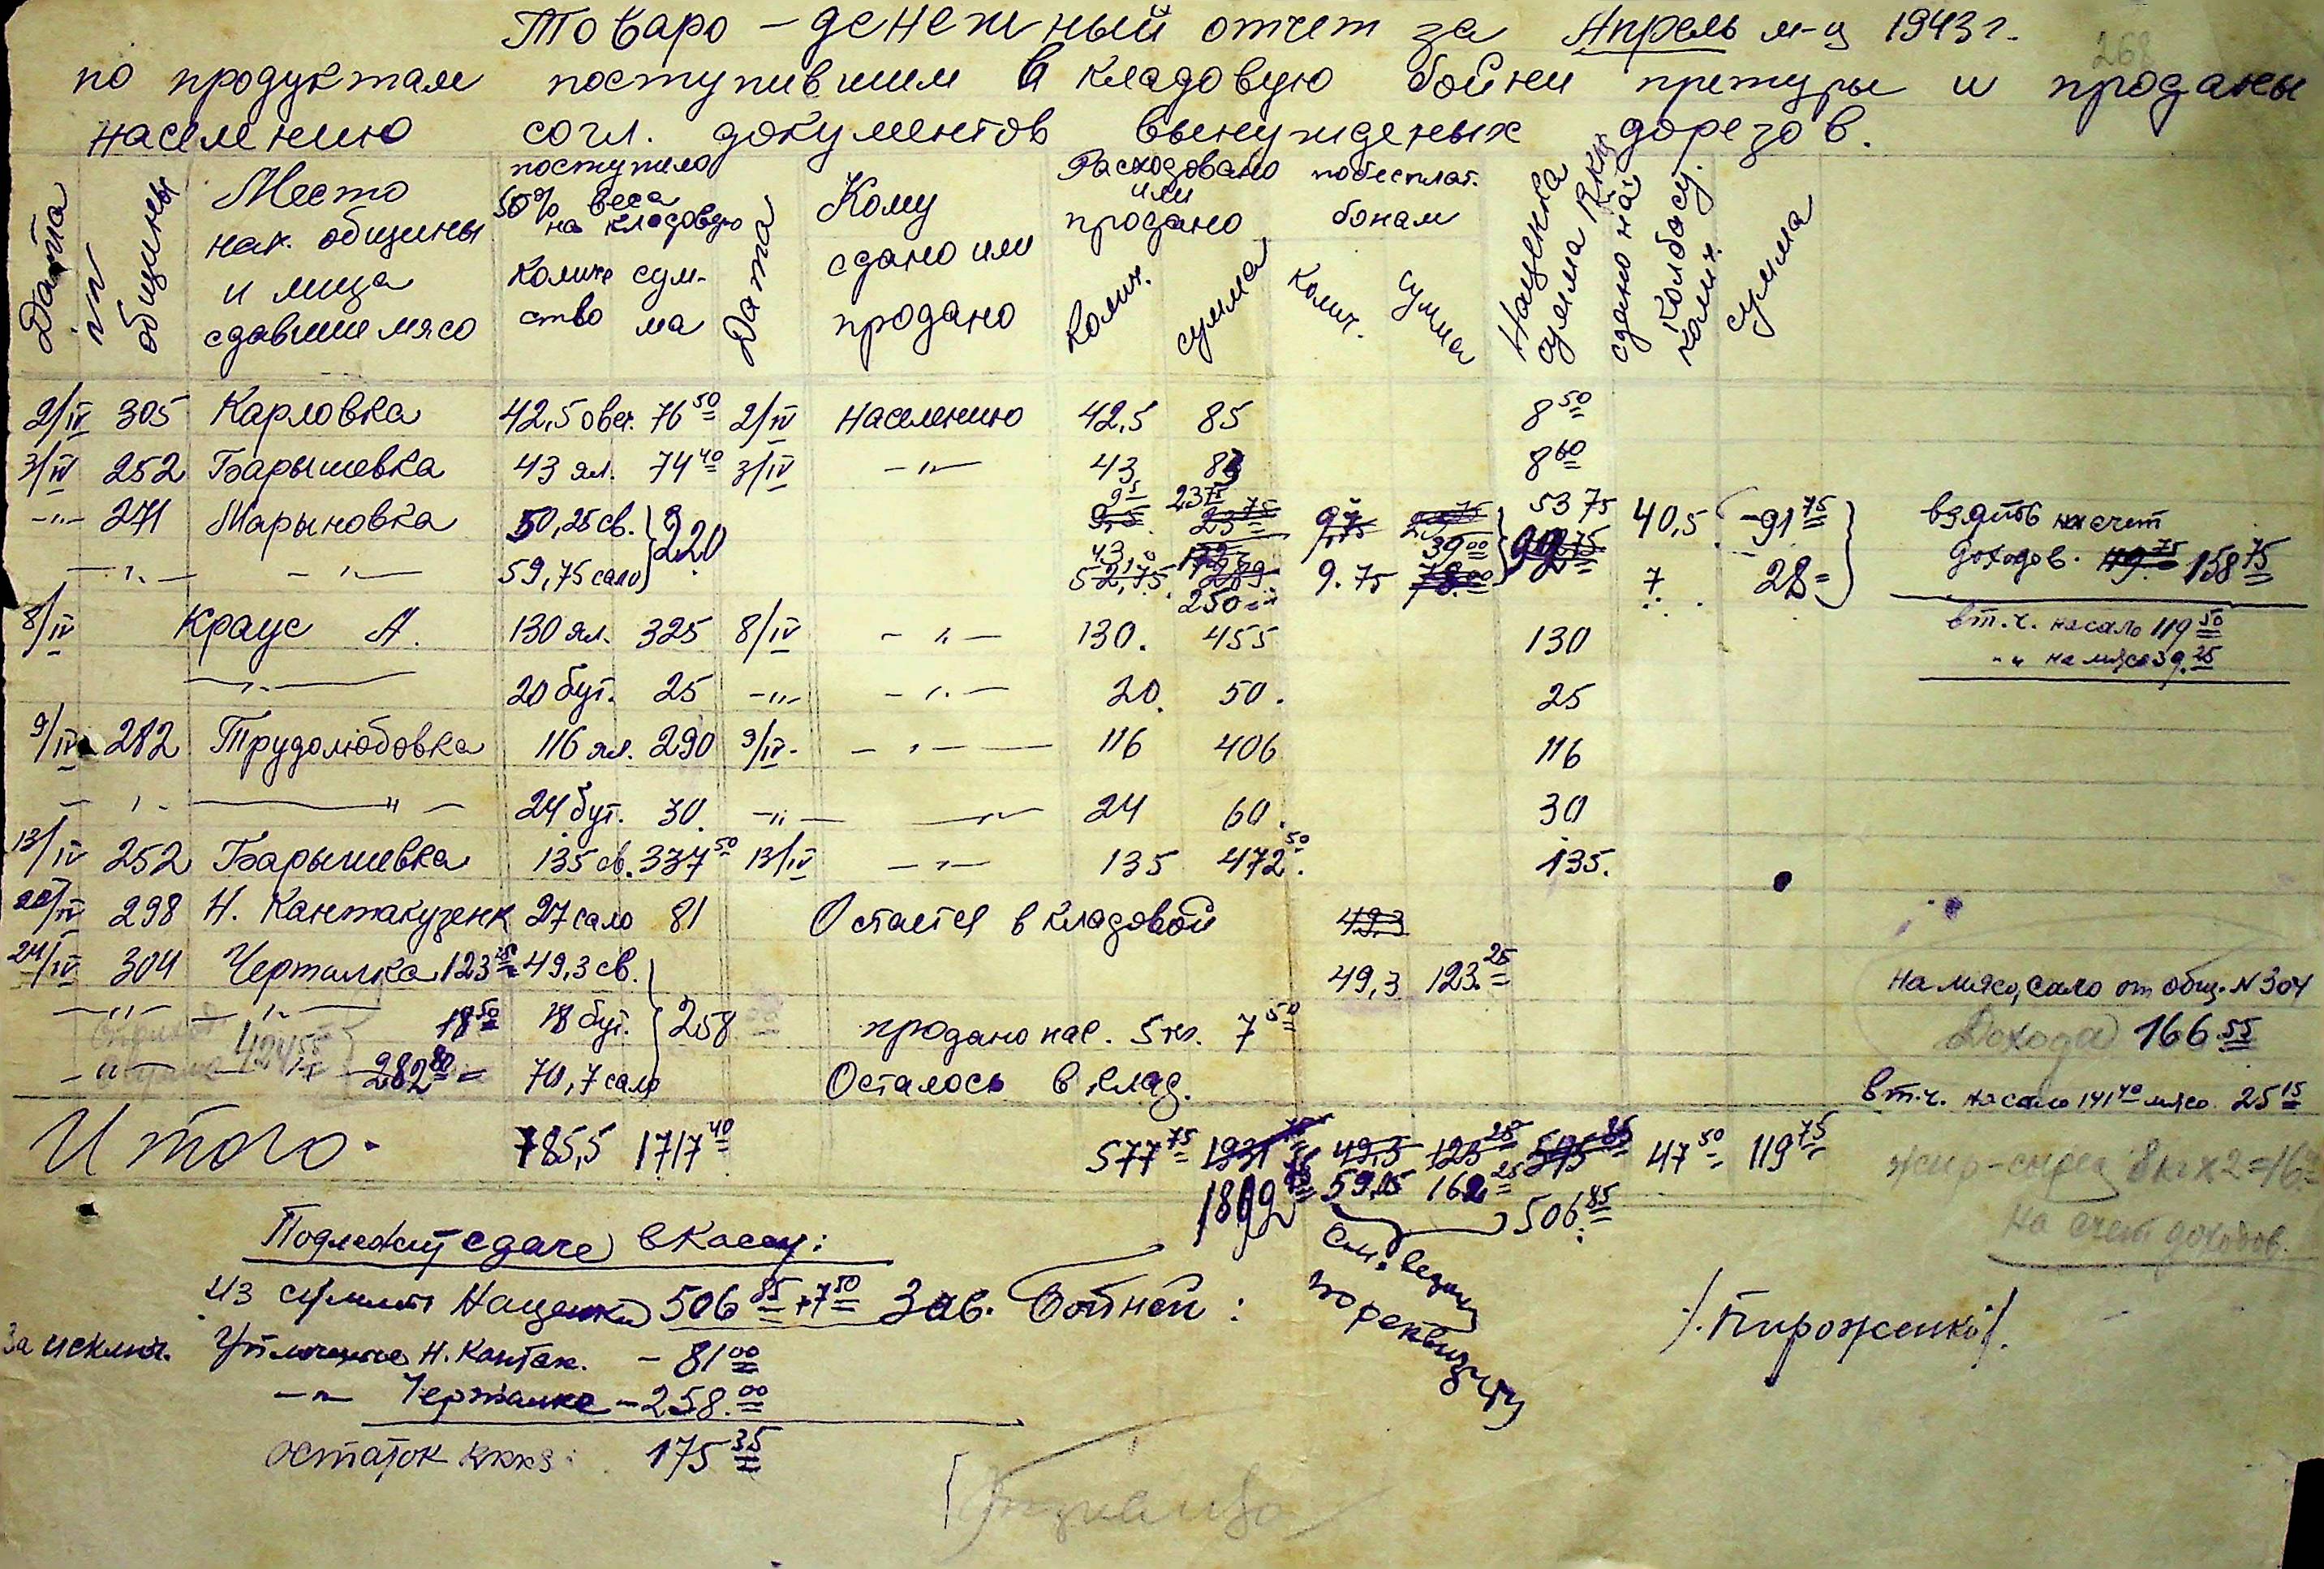 268
Товаро-денежный отчет за Апрель м-ц 1943 г.
по продуктам поступившим в кладовую бойни претуры и проданы
населению согл. документов вынужденых дорезов.
Дата
общины
Место нах. общины и лица сдавшие мясо
поступило 50% веса на кладовую
Количество сумма
Дата
Кому сдано или продано
Расходовано или продано
Колич. сумма
по бесплат. бонам
Колич. Сумма
Наценка сумма
сдано на колбасу. колич. сумма
2/IV 305 Карловка 42,5 овеч. 76 50 2/IV Населению 42,5 85 8 50
3/IV 252 Барышевка 43 ял. 74 40 3/IV -"- 43 83 8 60
-"- 271 Марьновка 50,25 св. 220 9 5 23 75 53 75 40,5 -91 75 взять на счет
-"- -"- 59,75 сало 52,75 289 9.75 39 00 78 00 7 28= доходов. 119 75 158 75
250=
8/IV Краус А. 130 ял. 325 8/IV -"- 130. 455 130 в т.ч. на сало 119 50
-"- на мясо 39.25
-"- 20 бут. 25 -"- -"- 20. 50. 25
9/IV 282 Трудолюбовка 116 ял. 290 9/IV. -"- 116 406 116
-"- -"- 24 бут. 30. -"- -"- 24 60. 30
13/IV 252 Барышевка 135 св. 337 50 13/IV -"- 135 472 50. 135.
298 Н. Кантакузенк 27 сало 81 Остается в кладовой 49.3
24/IV 304 Черталка 123 25 49,3 св. 49,3 123.25 на мясо, сало от общ. N 304
-"- -"- 18 50 18 бут. 258 продано нас. 5 кг. 7 50 Дохода 166.55
424 55
-"- 282 80 = 70,7 сало Осталось в клад. в т.ч. на сало 141 40 мясо 25 15
Итого. 785,5 1717 40 577 75 1931 49,3 123 25 515 85 47 50 119 75
1892 59,05 162 25 506 85
8 кг х 2 = 16
на счет доходов.
Подлежит сдаче в кассу:
из суммы Наценки 506 85 + 7 50 Зав. Бойней: /.Пироженко/.
см. ведом. по реквизиту
За исключ. Уплоченное Н. Кантак. - 81 00
-"- Черталке - 258.00
остаток 175 35